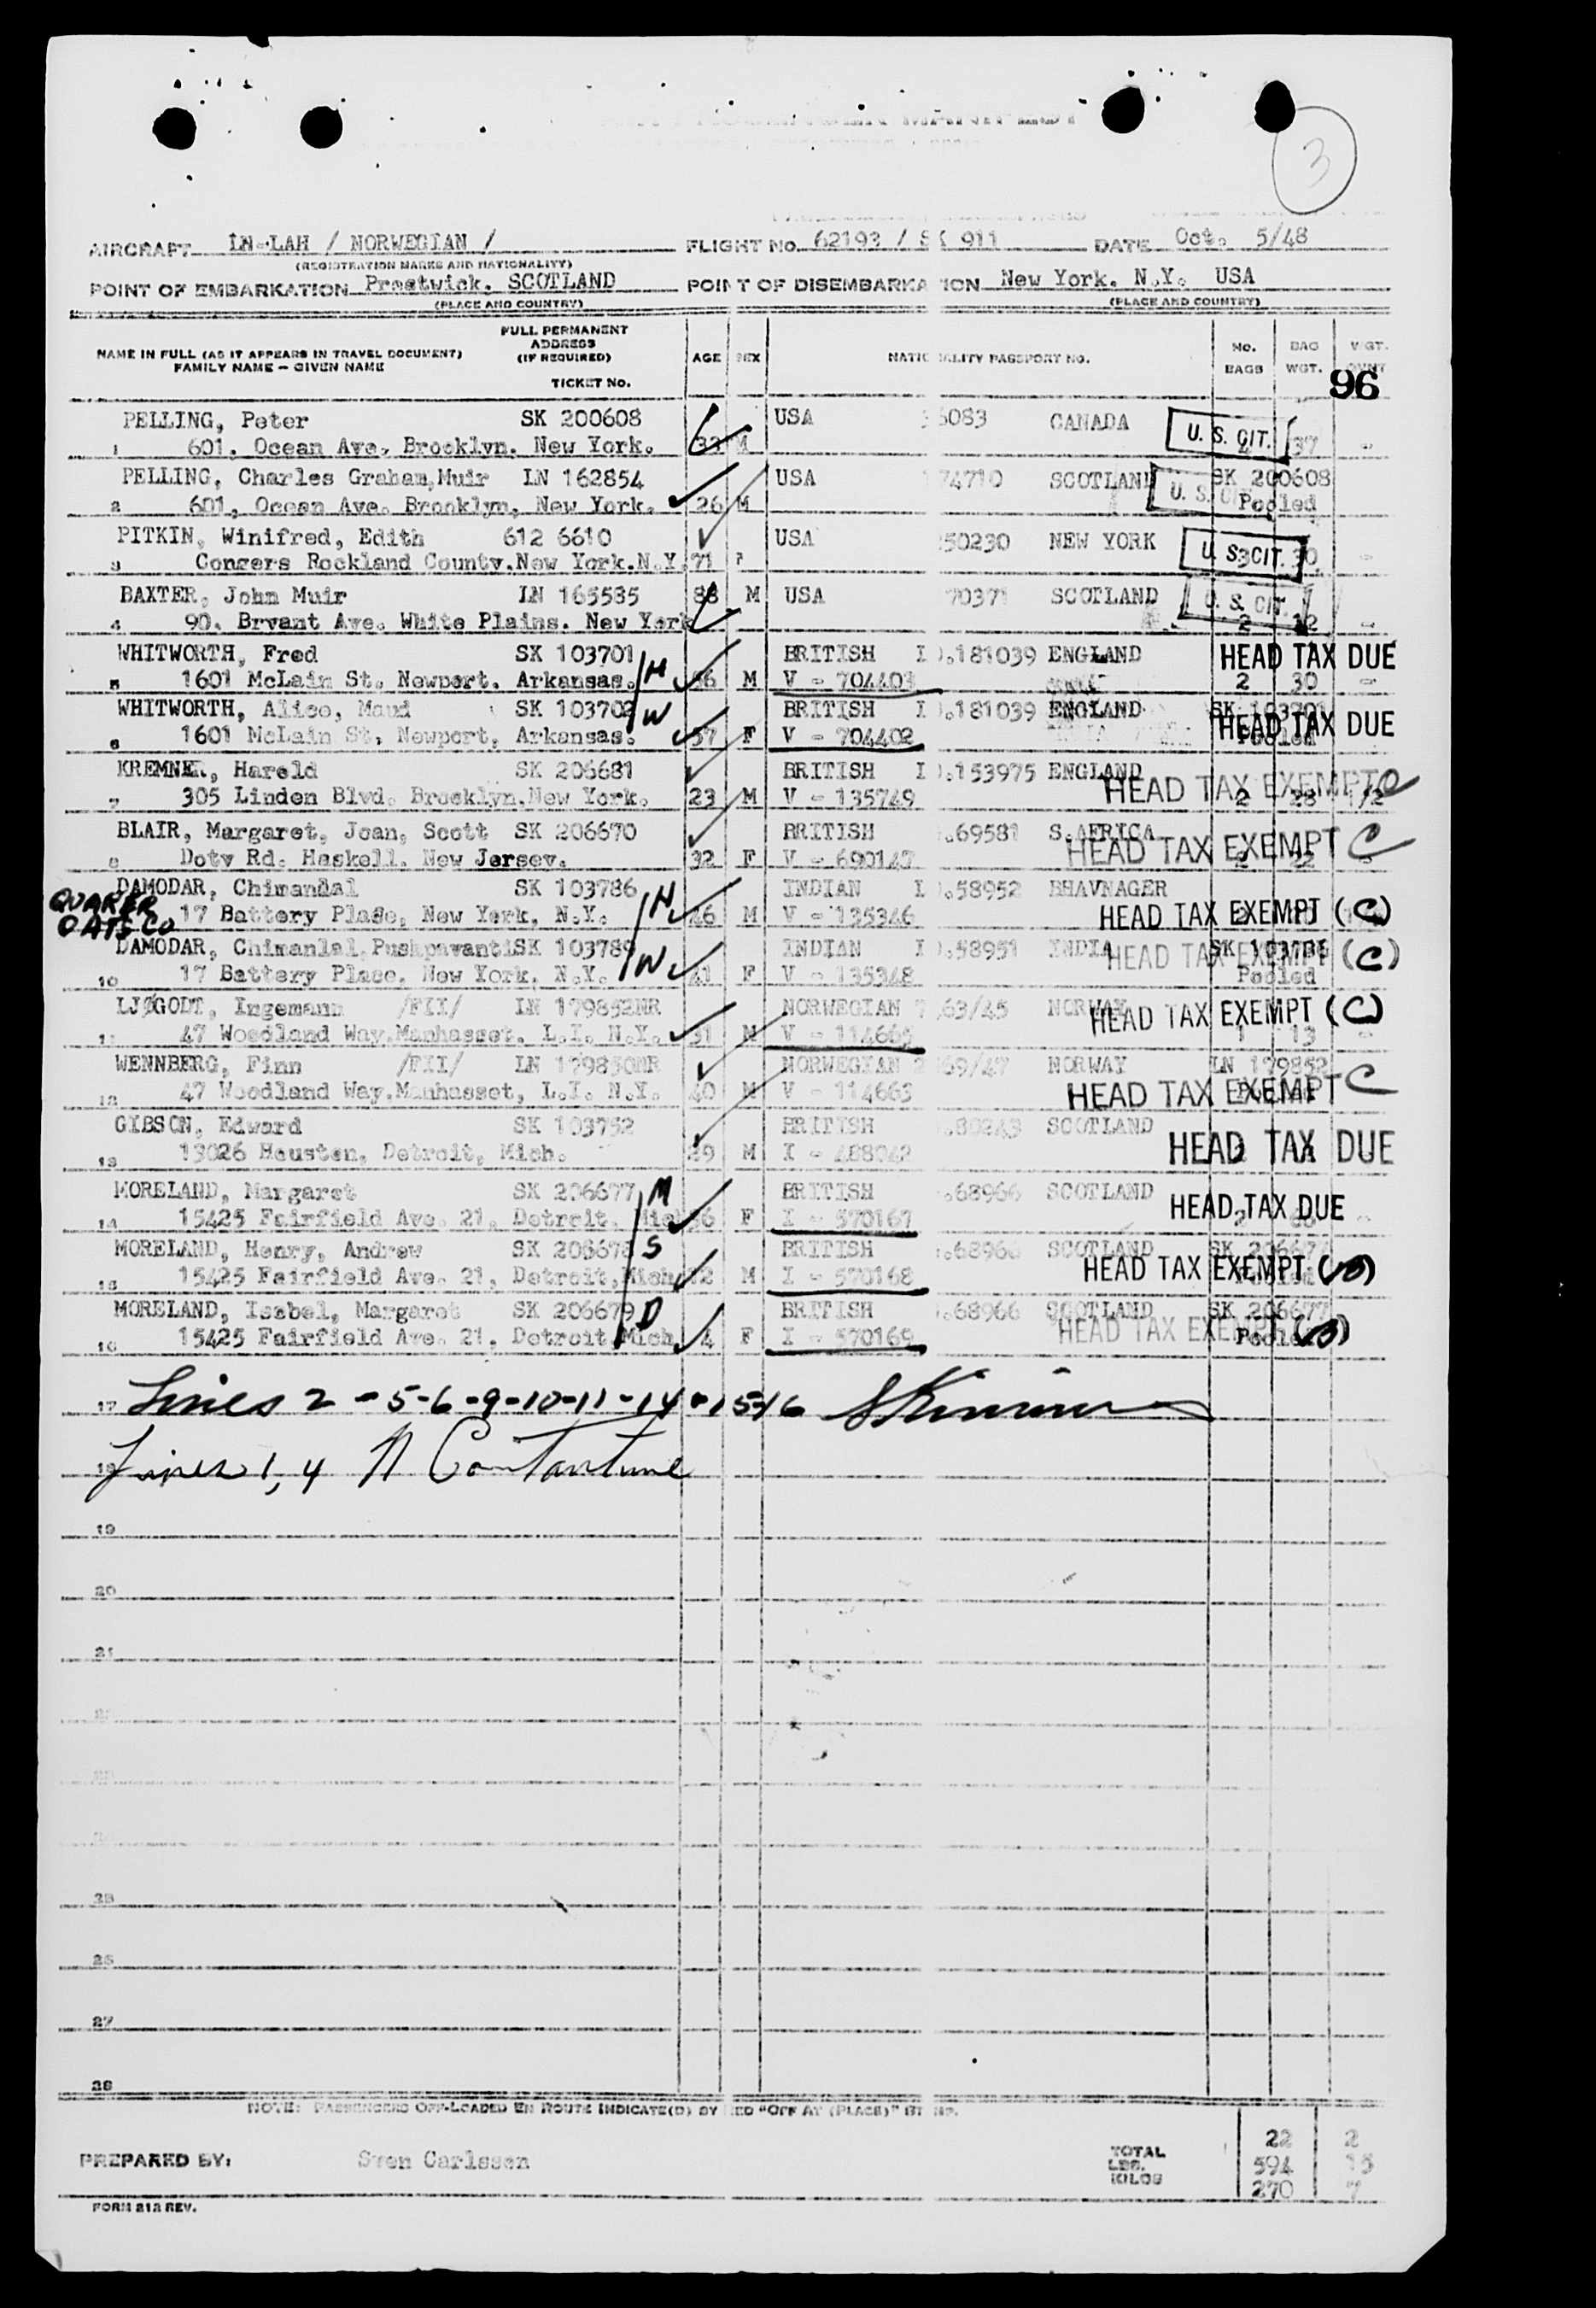 3
AIRCRAFT LN-LAH / NORWEGIAN / FLIGHT No. 62193 / SK 911 DATE Oct. 5/48
(REGISTRATION MARKS AND NATIONALITY)
POINT OF EMBARKATION Prestwick. SCOTLAND POINT OF DISEMBARKATION New York. N.Y. USA
(PLACE AND COUNTRY) (PLACE AND COUNTRY)
NAME IN FULL (AS IT APPEARS IN TRAVEL DOCUMENT) FULL PERMANENT ADDRESS (IF REQUIRED) AGE SEX NATIONALITY PASSPORT NO. No. BAGS BAG WGT.
FAMILY NAME — GIVEN NAME TICKET No. 96
PELLING, Peter SK 200608 USA 6083 CANADA U. S. CIT.
1 601, Ocean Ave. Brooklyn. New York. 33 M 37 -
PELLING, Charles Graham, Muir LN 162854 USA 74710 SCOTLAND U. S. SK 200608
2 601, Ocean Ave. Brooklyn, New York. 26 M Pooled
PITKIN, Winifred, Edith 612 6610 USA 50230 NEW YORK U. S. CIT.
3 Congers Rockland County. New York. N.Y. 71 3 30 -
BAXTER, John Muir LN 165535 88 M USA 70371 SCOTLAND U. S. CIT.
4 90. Bryant Ave. White Plains. New York 2 12 -
WHITWORTH, Fred SK 103701 H BRITISH .181039 ENGLAND HEAD TAX DUE
5 1601 McLain St. Newport. Arkansas. M V - 704403 2 30 -
WHITWORTH, Alice, Maud SK 103702 W BRITISH .181039 ENGLAND SK 103701 HEAD TAX DUE
6 1601 McLain St, Newport, Arkansas. 57 F V - 704402 Pooled
KREMNER, Harold SK 206681 BRITISH .153975 ENGLAND HEAD TAX EXEMPT
7 305 Linden Blvd. Brooklyn. New York. 23 M V - 135749 2 28 1/2
BLAIR, Margaret, Joan, Scott SK 206670 BRITISH .69581 S.AFRICA HEAD TAX EXEMPT C
8 Doty Rd. Haskell. New Jersey. 32 F V - 690147
QUAKER OATS CO
DAMODAR, Chimanlal SK 103786 H INDIAN .58952 BHAVNAGER
17 Battery Place, New York, N.Y. 46 M V - 135346 HEAD TAX EXEMPT (C)
DAMODAR, Chimanlal, Pushpavanti SK 103789 W INDIAN .58951 INDIA HEAD TAX EXEMPT (C) SK 103786
10 17 Battery Place. New York. N.Y. 41 F V - 135348 Pooled
LJØGODT, Ingemann /FII/ LN 179852NR NORWEGIAN 63/45 NORWAY HEAD TAX EXEMPT (C)
11 47 Woodland Way. Manhasset. L.I. N.Y. 31 M V - 114665 1 13 -
WENNBERG, Finn /FII/ LN 179850NR NORWEGIAN 69/47 NORWAY LN 179852
12 47 Woodland Way. Manhasset, L.I. N.Y. 40 M V - 114663 HEAD TAX EXEMPT C
GIBSON, Edward SK 103752 BRITISH SCOTLAND
13 13026 Housten, Detroit, Mich. M I - HEAD TAX DUE
MORELAND, Margaret SK 206677 M BRITISH .68966 SCOTLAND HEAD TAX DUE
14 15425 Fairfield Ave. 21. Detroit. Mich F I - 570167
MORELAND, Henry, Andrew SK 206678 S BRITISH .68966 SCOTLAND SK 206677
15 15425 Fairfield Ave. 21, Detroit, Mich 12 M I - 570168 HEAD TAX EXEMPT (B)
MORELAND, Isabel, Margaret SK 206679 D BRITISH .68966 SCOTLAND SK 206677
16 15425 Fairfield Ave. 21. Detroit Mich 4 F I - 570169 HEAD TAX EXEMPT (B) Pooled
17 Lines 2 - 5-6-9-10-11-14-15-16
18 Lines 1, 4
19
20
21
25
26
27
28
NOTE: PASSENGERS OFF-LOADED EN ROUTE INDICATE(D) BY RED "OFF AT (PLACE)"
PREPARED BY: Sven Carlsson
TOTAL 22 2
LBS. 594 15
KILOS 270 7
FORM 212 REV.